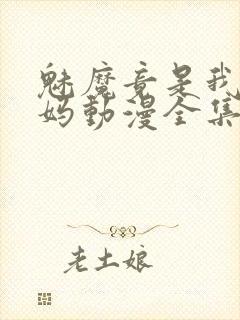 魅魔竟是我
妈动漫全集
老土娘